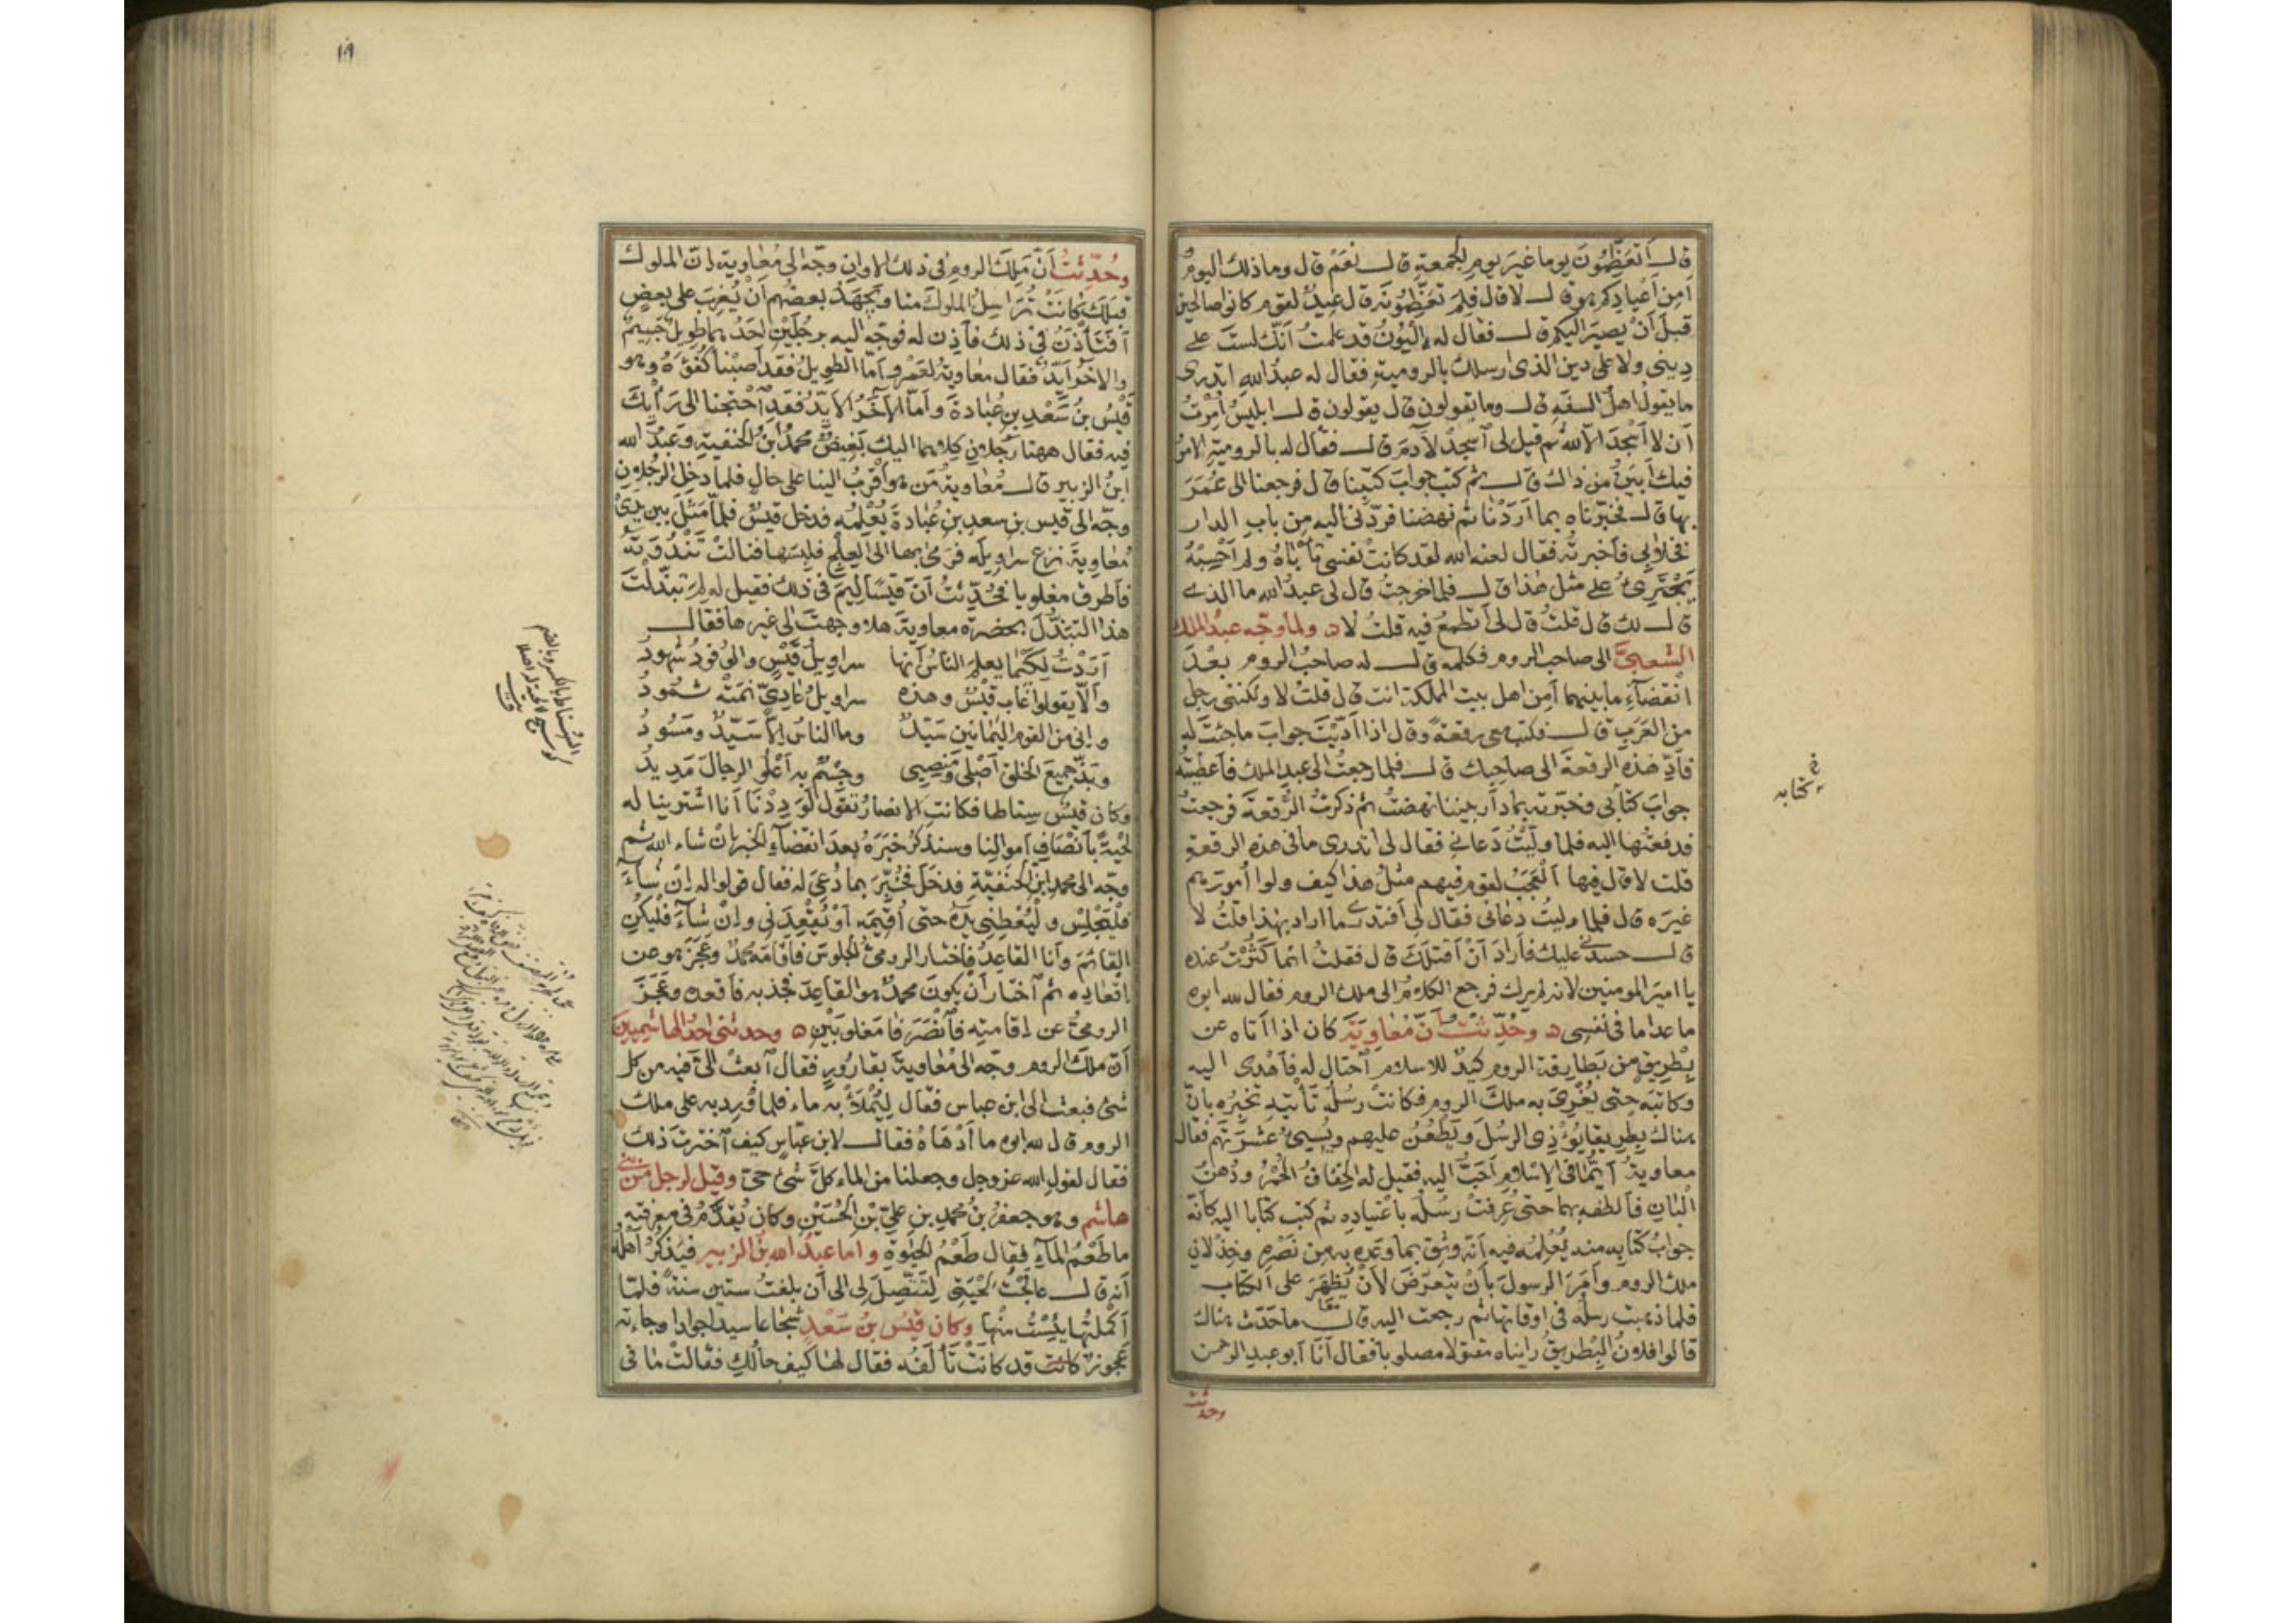 قال أتعظمون يوما غير يوم الجمعة قال نعم قال وما ذلك اليوم
أمن أعيادكم هو قال لا قال فلم تعظمونه قال عيد لقوم كانوا صالحين
قبل أن يصير اليكم قال فقال له اليون قد علمت أنك لست على
ديني ولا على دين الذي ارسلك بالرومية فقال له عبد الله اتدرى
ما يقول اهل السفه قال وما يقولون قال يقولون قال ابليس أمرت
أن لا أسجد الا لله ثم قيل لى اسجد لآدم قال فقال له بالرومية الامر
فيك أبين من ذاك قال ثم كتب جواب كتبنا قال فرجعنا الى عمر
بها قال فخبرناه بما أردنا ثم نهضنا فردني اليه من باب الدار
فخلا بى فأخبرته فقال لعنه الله لقد كانت نفسى تأباه ولم أحسبه
يجترئ على مثل هذا قال فلما خرجت قال لى عبد الله ما الذى
قال لك قال قلت قال لى أتطمع فيه قلت لا ه ولما وجه عبد الملك
الشعبى الى صاحب الروم فكلمه قال له صاحب الروم بعد
انقضاء ما بينهما أمن اهل بيت المملكة انت قال قلت لا ولكننى رجل
من العرب قال فكتب معى رقعة وقال اذا أديت جواب ما جئت له
فأد هذه الرقعة الى صاحبك قال فلما رجعت الى عبد الملك فأعطيته
جواب كتابى وخبرته بما دار بيننا نهضت ثم ذكرت الرقعة فرجعت
فدفعتها اليه فلما وليت دعانى فقال لى اتدرى ما فى هذه الرقعة
قلت لا قال فيها العجب لقوم فيهم مثل هذا كيف ولوا أمورهم
غيره قال فلما وليت دعانى فقال لى أفتدرى ما اراد بهذا قلت لا
قال حسدنى عليك فأراد أن أقتلك قال فقلت انما كثرت عنده
يا امير المومنين لانه لم يرك فرجع الكلام الى ملك الروم فقال لله ابوه
ما عدا ما فى نفسى ه وحدثت أن معاوية كان اذا أتاه عن
بطريق من بطارقة الروم كيد للاسلام احتال له فأهدى اليه
وكاتبه حتى يغرى به ملك الروم فكانت رسله تأتيه تخبره بان
هناك بطريقا يؤذى الرسل ويطعن عليهم ويسىء عشرتهم فقال
معاوية أيما فى الاسلام أحب اليه فقيل له الخفاف الحمر ودهن
البان فألطفه بهما حتى عرفت رسله باعتياده ثم كتب كتابا اليه كأنه
جواب كتابه منه يعلمه فيه أنه وثق بما وعده به من نصره وخذلان
ملك الروم وأمر الرسول بأن يتعرض لأن يظهر على الكتاب
فلما ذهبت رسله فى اوقاتها ثم رجعت اليه قال ما حدث هناك
قالوا فلان البطريق رايناه مقتولا مصلوبا فقال أنا أبو عبد الرحمن
وحدثت
كتابه
١٠٩
وحدثت أن ملك الروم فى ذلك الاوان وجه الى معاوية ان الملوك
قبلك كانت تراسل الملوك منا ويجهد بعضهم أن يغرب على بعض
أفتأذن فى ذلك فأذن له فوجه اليه برجلين احدهما طويل جسيم
والاخر أيد فقال معاوية لعمرو أما الطويل فقد أصبنا كفؤه وهو
قيس بن سعد بن عبادة وأما الآخر الأيد فقد احتجنا الى رأيك
فيه فقال ههنا رجلان كلاهما اليك بغيض محمد ابن الحنفية وعبد الله
ابن الزبير قال معاوية من هو أقرب الينا على حال فلما دخل الرجلان
وجه الى قيس بن سعد بن عبادة يعلمه فدخل قيس فلما مثل بين يدى
معاوية نزع سراويله فرمى بها الى العلج فلبسها فنالت ثندوته
فأطرق مغلوبا فحدثت أن قيسا ليم فى ذلك فقيل له لم تبذلت
هذا التبذل بحضرة معاوية هلا وجهت الى غيرها فقال
أردت لكيما يعلم الناس أنها سراويل قيس والوفود شهود
وألا يقولوا غاب قيس وهذه سراويل عادى نمته ثمود
وانى من القوم اليمانين سيد وما الناس الا سيد ومسود
وبذ جميع الخلق أصلى ومنصبى وجسم به أعلو الرجال مديد
وكان قيس سناطا فكانت الانصار تقول لوددنا أنا اشترينا له
لحية بأنصاف أموالنا وسنذكر خبره بعد انقضاء الخبر ان شاء الله ثم
وجه الى محمد ابن الحنفية فدخل فخبر بما دعى له فقال قولوا له ان شاء
فليجلس وليعطنى يده حتى أقيمه أو يقعدنى وان شاء فليكن
القائم وأنا القاعد فاختار الرومى الجلوس فاقامه محمد وعجز هو عن
اقعاده ثم اختار أن يكون محمد هو القاعد فجذبه فأقعده وعجز
الرومى عن اقامته فانصرفا مغلوبين ه وحدثنى احد الهاشميين
أن ملك الروم وجه الى معاوية بقارورة فقال ابعث الى فيه من كل
شئ فبعث الى ابن عباس فقال ليملأ به ماء فلما ورد به على ملك
الروم قال لله ابوه ما أدهاه فقال لابن عباس كيف اخترت ذلك
فقال لقول الله عز وجل وجعلنا من الماء كل شئ حى وقيل لرجل من بنى
هاشم وهو جعفر بن محمد بن على بن الحسين وكان يقدم فى معرفته
ما طعم الماء فقال طعم الحيوة وأما عبد الله بن الزبير فيذكر أهله
أنه قال عالجت لحيتى لتتصل لى الى أن بلغت ستين سنة فلما
أكملتها يئست منها وكان قيس بن سعد شجاعا سيدا جوادا وجاءته
عجوز كانت قد كانت تألفه فقال لها كيف حالك فقالت ما فى
السناط بالكسر وبالضم
كوسج لا لحية له اصلا